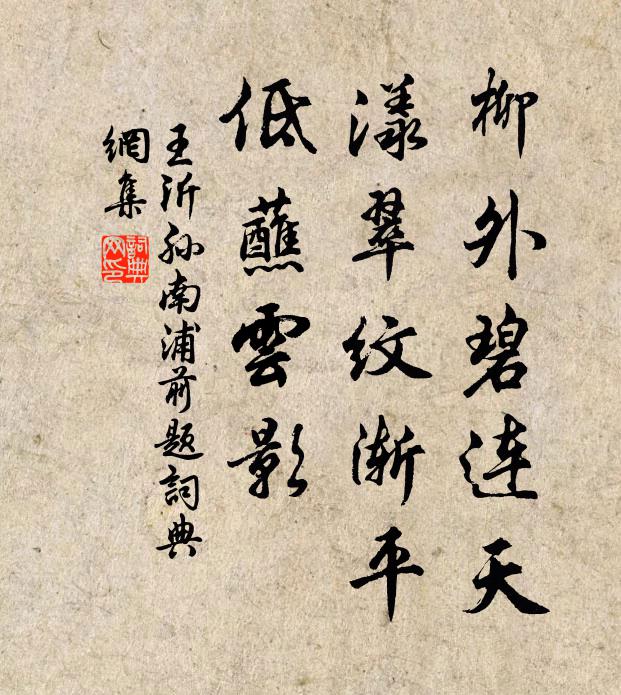 柳外碧连天
漾翠纹渐平
低蘸雲影
王沂孙南浦前题詞典
網集
詞典
网印